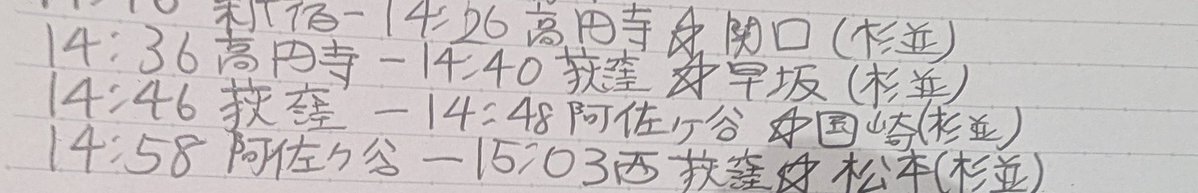 新宿-14:26 高円寺☆関口(杉並)
14:36 高円寺-14:40 荻窪☆早坂(杉並)
14:46 荻窪-14:48 阿佐ヶ谷☆国崎(杉並)
14:58 阿佐ヶ谷-15:03西荻窪☆松本(杉並)